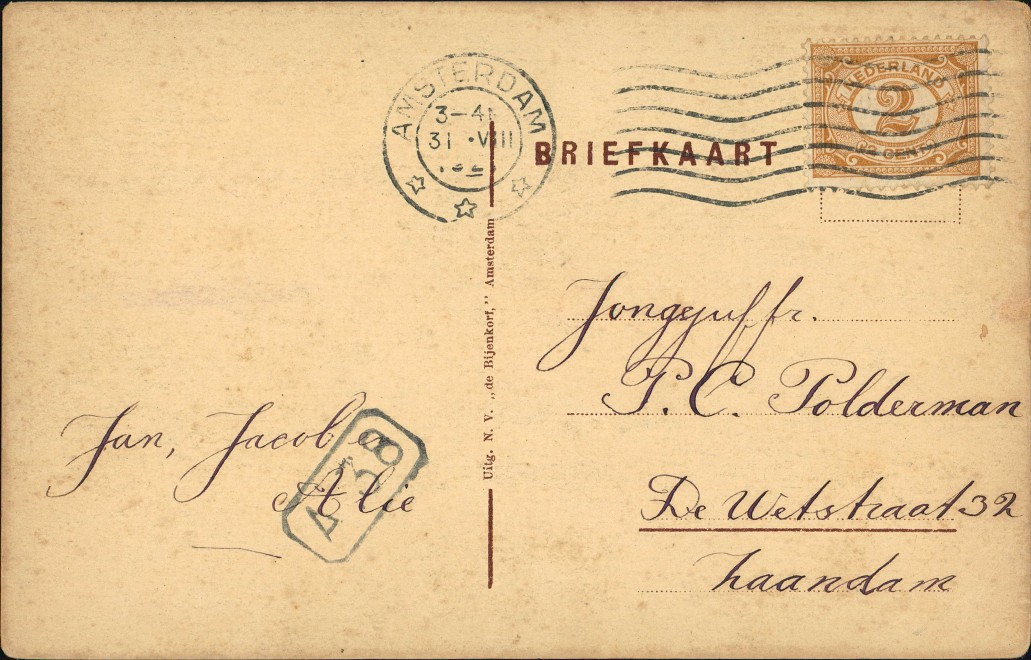 AMSTERDAM
31 .VIII
BRIEFKAART
NEDERLAND
2
(2 CENT)
Uitg. N. V. „de Bijenkorf," Amsterdam
Jongejuffr.
P. C. Polderman
De Wetstraat 32
Zaandam
Jan, Jacob en
Alie
A 38